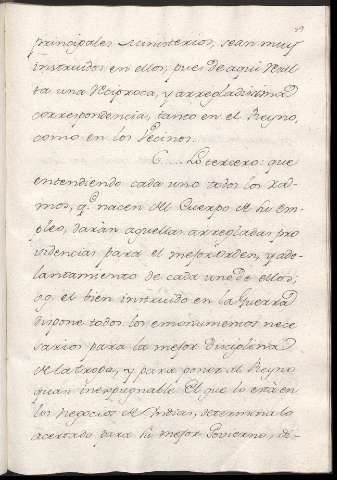 principales Ministerios, sean muy
instruidos en ellos, pues de aqui resul
ta una reciproca, y arregladissima
correspondencia, tanto en el Reyno,
como en los Vecinos.
6.... Lo tercero: que
entendiendo cada uno todos los Ra-
mos, q.e nacen del Cuerpo de su em
pleo, daràn aquellas arregladas pro
videncias para el mejor orden, y ade-
lantamiento de cada uno de ellos;
v.g. el bien instruido en la Guerra
dispone todos los emonumentos nece
sarios para la mejor disciplina
de la tropa, y para poner el Reyno
quasi inexpugnable. El que lo està en
los negocios de Indias, determina lo
acertado para su mejor Govierno, di-